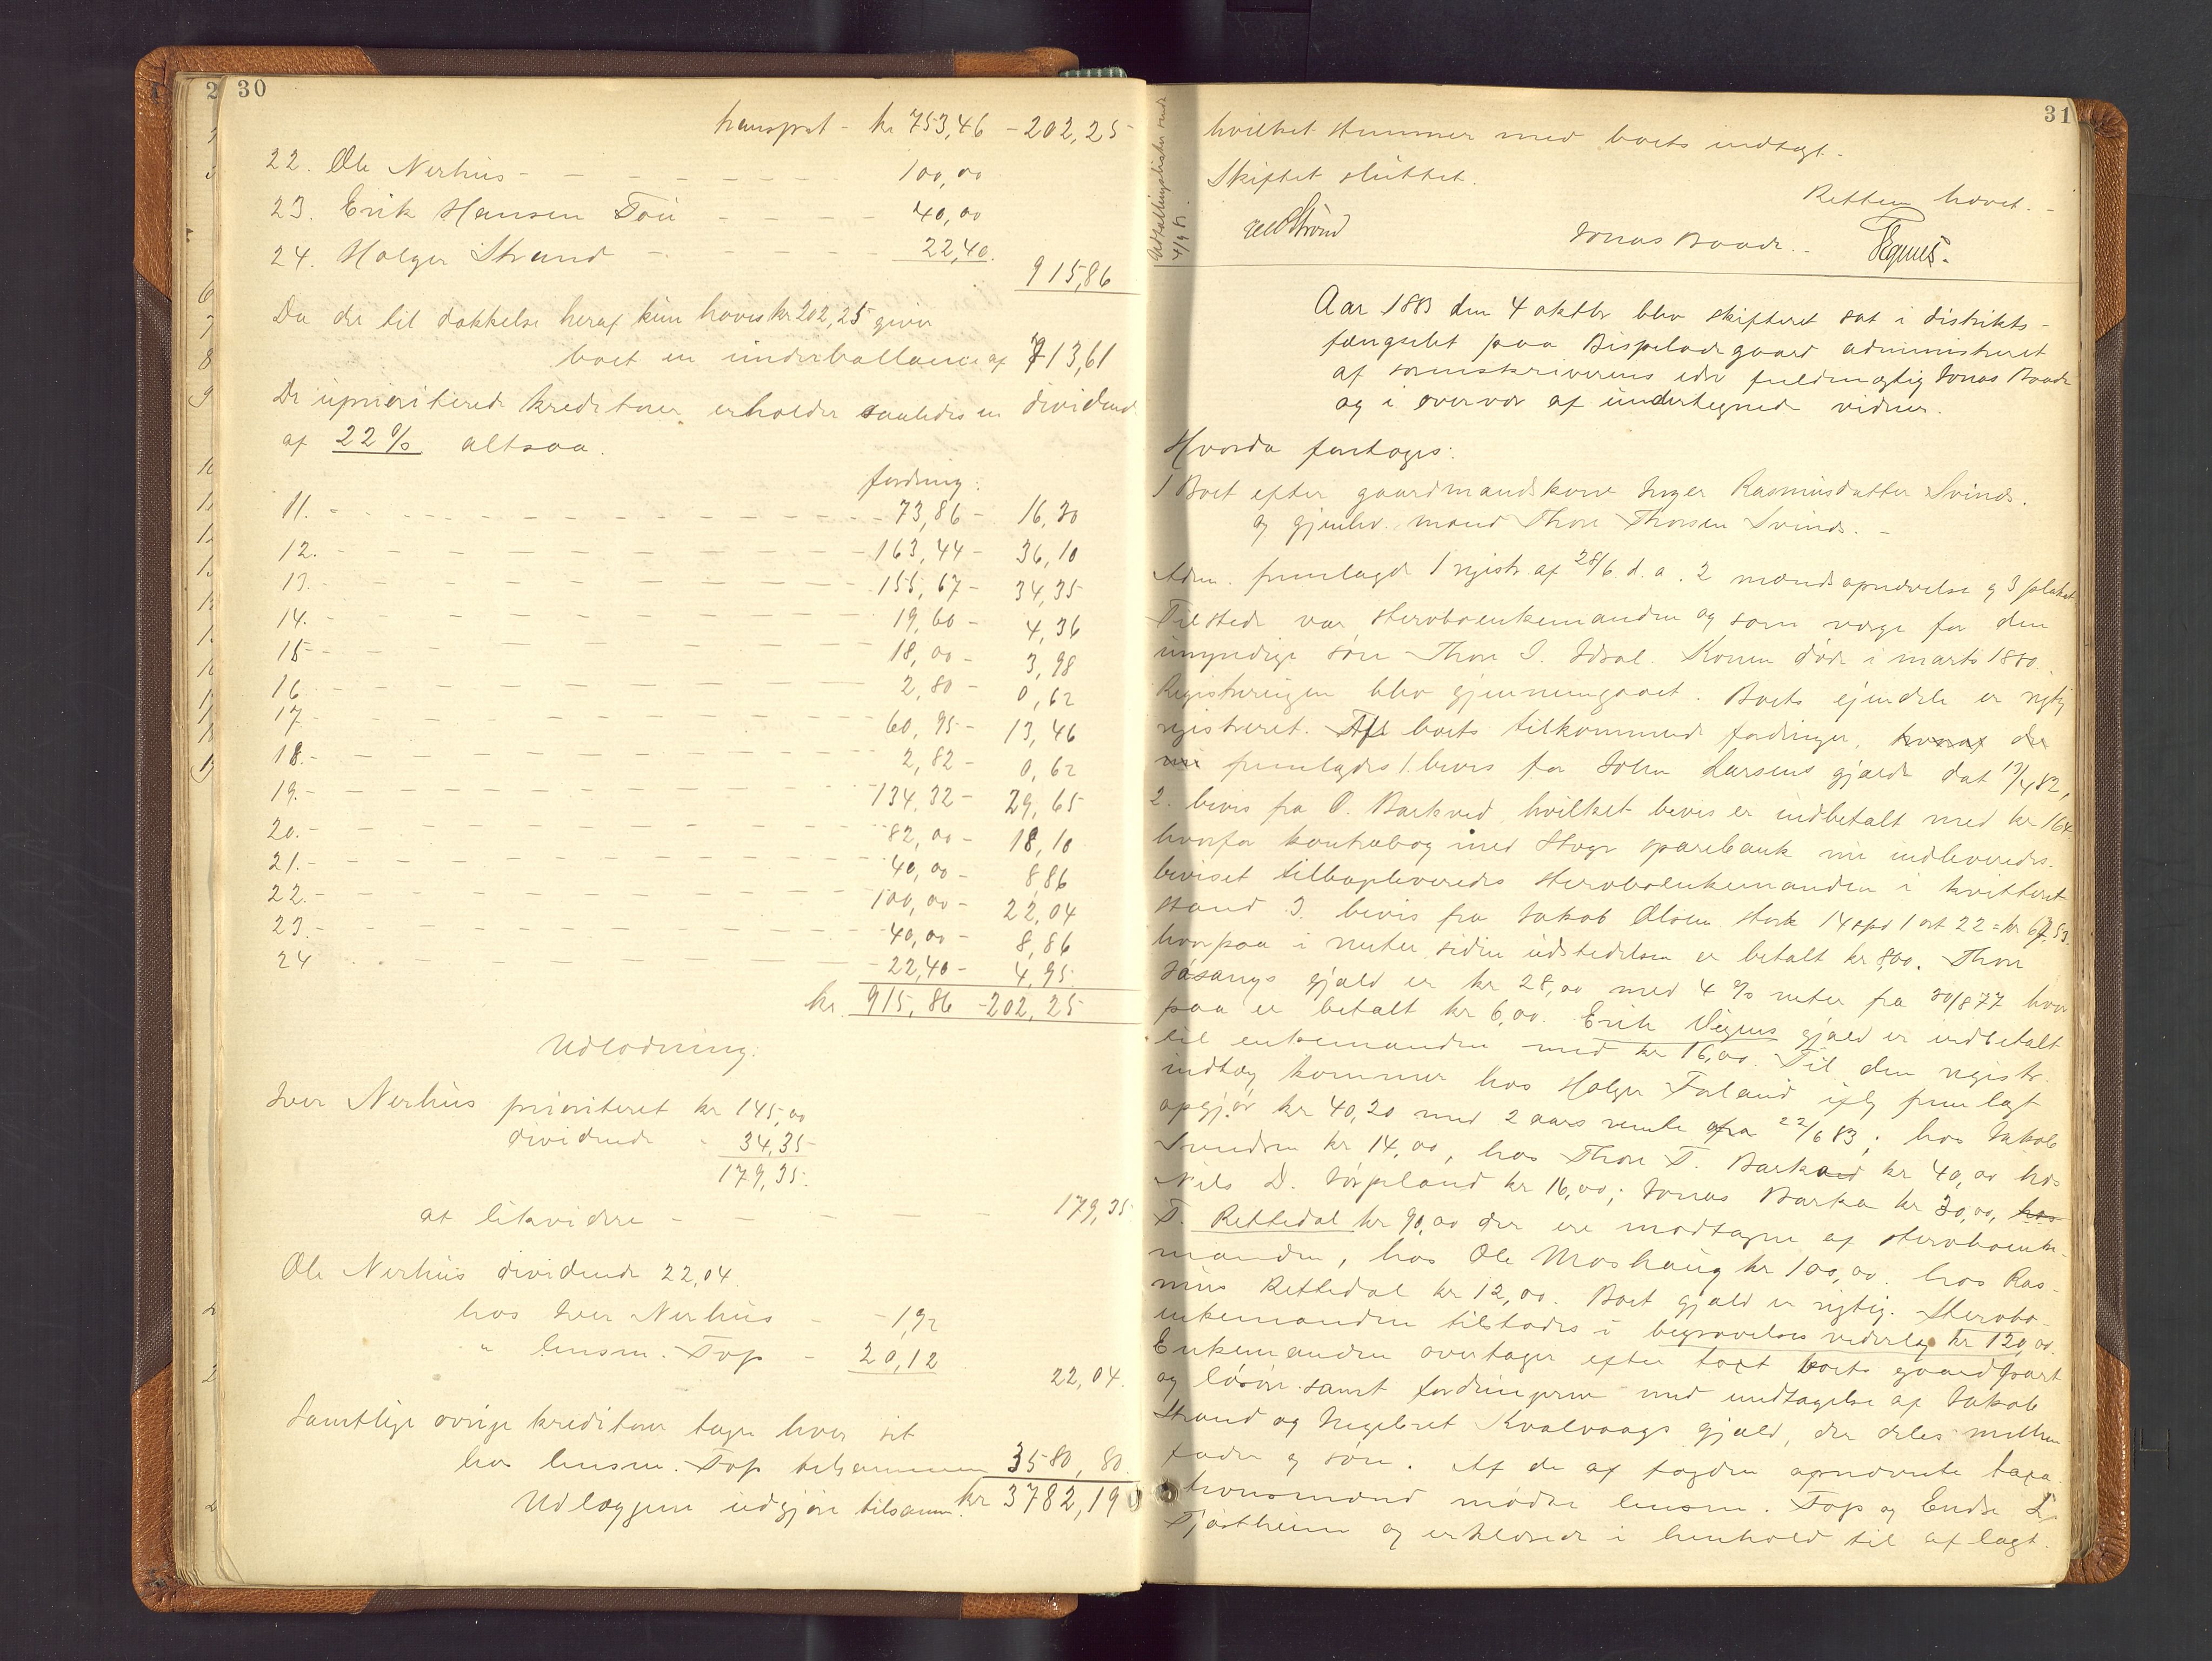 30
transport - kr 753,46 - 202,25
22. Ole Nerhus - - - - - - - 100,00
23. Erik Hansen Tou - - - - 40,00
24. Holger Strand - - - - - 22,40.
915,86
Da der til dækkelse heraf kun haves kr 202,25 giver
boet en underballance af 713,61
De uprioriterede kreditorer erholder saaledes en dividende
af 22 % altsaa.
fordring:
11. - - - - - - - - 73,86 - 16,30
12. - - - - - - - - 163,44 - 36,10
13. - - - - - - - - 155,67 - 34,35
14. - - - - - - - - 19,60 - 4,36
15 - - - - - - - - 18,00 - 3,98
16 - - - - - - - - 2,80 - 0,62
17 - - - - - - - - 60,95 - 13,46
18. - - - - - - - - 2,82 - 0,62
19. - - - - - - - - 134,32 - 29,65
20. - - - - - - - - 82,00 - 18,10
21. - - - - - - - - 40,00 - 8,86
22. - - - - - - - - 100,00 - 22,04
23. - - - - - - - - 40,00 - 8,86
24 - - - - - - - - 22,40 - 4,95
kr. 915,86 - 202,25
Udlodning:
Iver Nerhus prioriteret kr 145,00
dividende - 34,35
179,35.
at likvidere - - - - - 179,35
Ole Nerhus dividende 22,04.
hos Iver Nerhus - - 1,92
" lensm. Top - 20,12
22,04.
Samtlige øvrige kreditorer tager hver sit
hos lensm. Top tilsammen 3580,80.
Udlæggene udgjør tilsamm. kr 3782,19
31
hvilket stemmer med boets indtægt. -
Skiftet sluttet.
Retten hævet. -
Jonas Baade. -
Udfattningslister sendt
4/9 81.
Aar 1883 den 4 oktbr blev skifteret sat i distrikts-
fængslet paa Bispeladegaard administreret
af sorenskriverens edsv fuldmægtig Jonas Baade
og i overvær af undertegnede vidner.
Hvorda foretoges:
1 Boet efter gaardmandskone Inger Rasmusdatter Svines.
og gjenlev. mand Thore Thorsen Svines. -
Adm. fremlagde 1 registr. af 28/6 d.a. 2 mændsopnævnelse og 3 plakat
Tilstede var sterboenkemanden og som værge for den
umyndige søn Thore I. Idsal. Konen døde i marts 1880.
Registreringen blev gjennemgaaet. Boets ejendele er rigtig
registreret. Af boets tilkommende fordringer, hvoraf der
nu fremlagdes 1. bevis for John Larsens gjæld dat 13/4 82,
2. bevis fra O. Barkved, hvilket bevis er indbetalt med kr 164
hvorfor kontrabog med Stvgr sparebank nu indleveredes.
beviset tilbageleveredes sterboenkemanden i kvitteret
stand 3. bevis fra Jakob Olsen stort 14 spd 1 ort 22 = kr 67,53.
hvorpaa i renter siden udstedelsen er betalt kr 8,00. Thore
gjæld er kr 28,00 med 4 % renter fra 30/8 77 hvor
paa er betalt kr 6,00. Erik Vignes gjæld er indbetalt
til enkemanden med kr 16,00. Til den registr.
indtæg kommer hos Holger Foreland iflg fremlagt
opgjør kr 40,20 med 2 aars rente fra 22/6 83; hos Jakob
Svendsen kr 14,00, hos Thore T. Barkved kr 40,00 hos
Nils D. Jørpeland kr 16,00; Jonas Barka kr 30,00, hos
T. Rettedal kr 90,00 der ere modtagne af sterboenke-
manden, hos Ole Moshaug kr 100,00. hos Ras-
mus Rettedal kr 12,00. Boet gjæld er rigtig. Sterbo-
enkemanden tilstodes i begravelses vederlag kr 120,00.
Enkemanden overtager efter taxt boets gaardpart
og løsøre samt fordringerne med undtagelse af Jakob
Strand og Ingebret Kvalvaags gjæld, der deles mellem
fader og søn. Af de af fogden opnævnte taxa-
tionsmænd mødte lensm. Top og Endre L
Tjøstheim og erklærede i henhold til aflagt.